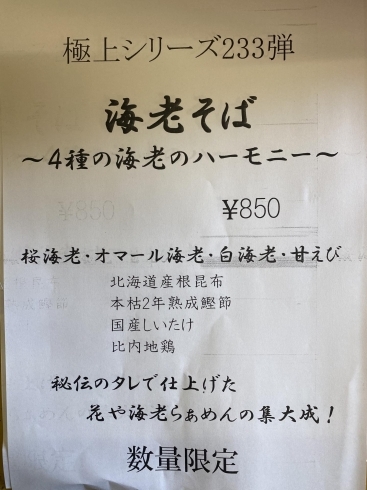 極上シリーズ233弾
海老そば
～4種の海老のハーモニー～
¥850
桜海老・オマール海老・白海老・甘えび
北海道産根昆布
本枯2年熟成鰹節
国産しいたけ
比内地鶏
秘伝のタレで仕上げた
花や海老らぁめんの集大成！
数量限定